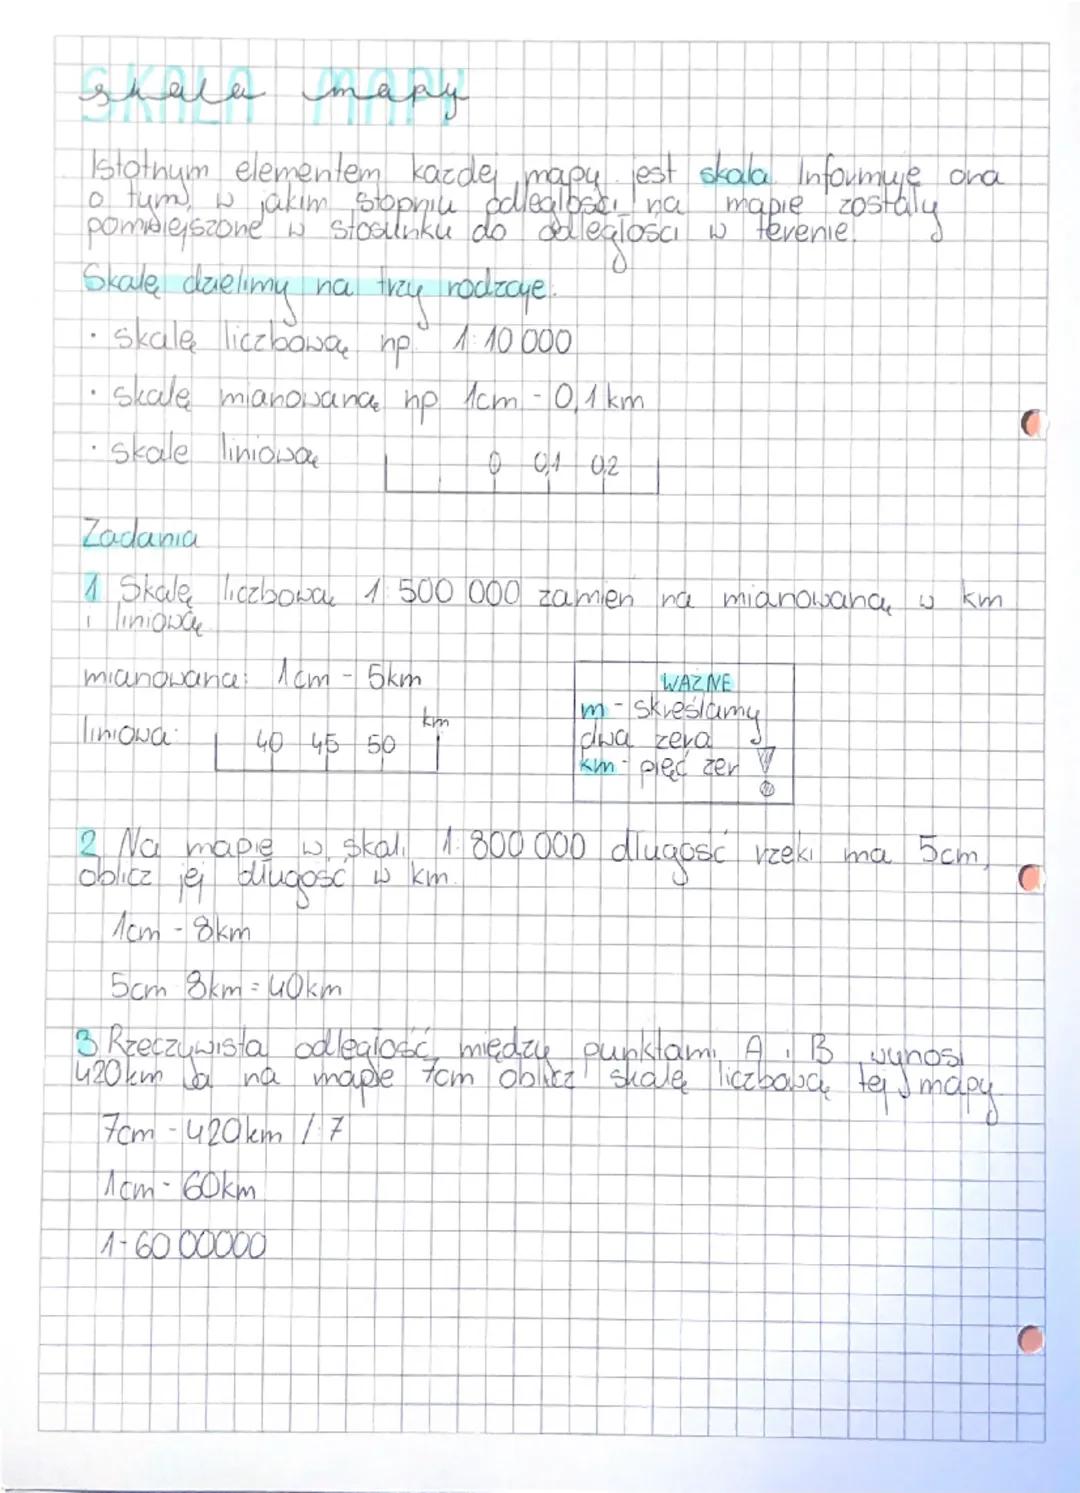 skala mapy
Istotnym elementem każdej mapy jest skala. Informuje ona
o tym, w jakim stopniu odległości na mapie zostały
pomniejszone w stosunku do odległości w terenie.
Skalę dzielimy na trzy rodzaje:
· skalę liczbową np. 1:10 000
· skalę mianowaną np 1cm - 0,1 km
· skale liniową
0 0,1 0,2
Zadania
1 Skalę liczbową 1:500 000 zamień na mianowaną w km
i liniową.
mianowana: 1cm - 5km
liniowa: 40 45 50 km
WAŻNE
m - skreślamy
dwa zera
km - pięć zer !
2 Na mapie w skali 1:800 000 długość rzeki ma 5cm,
oblicz jej długość w km.
1cm - 8km
5cm 8km = 40km
3 Rzeczywista odległość między punktami A i B wynosi
420km a na mapie 7cm oblicz skalę liczbową tej mapy
7cm - 420km /:7
1cm - 60km
1-60 00000